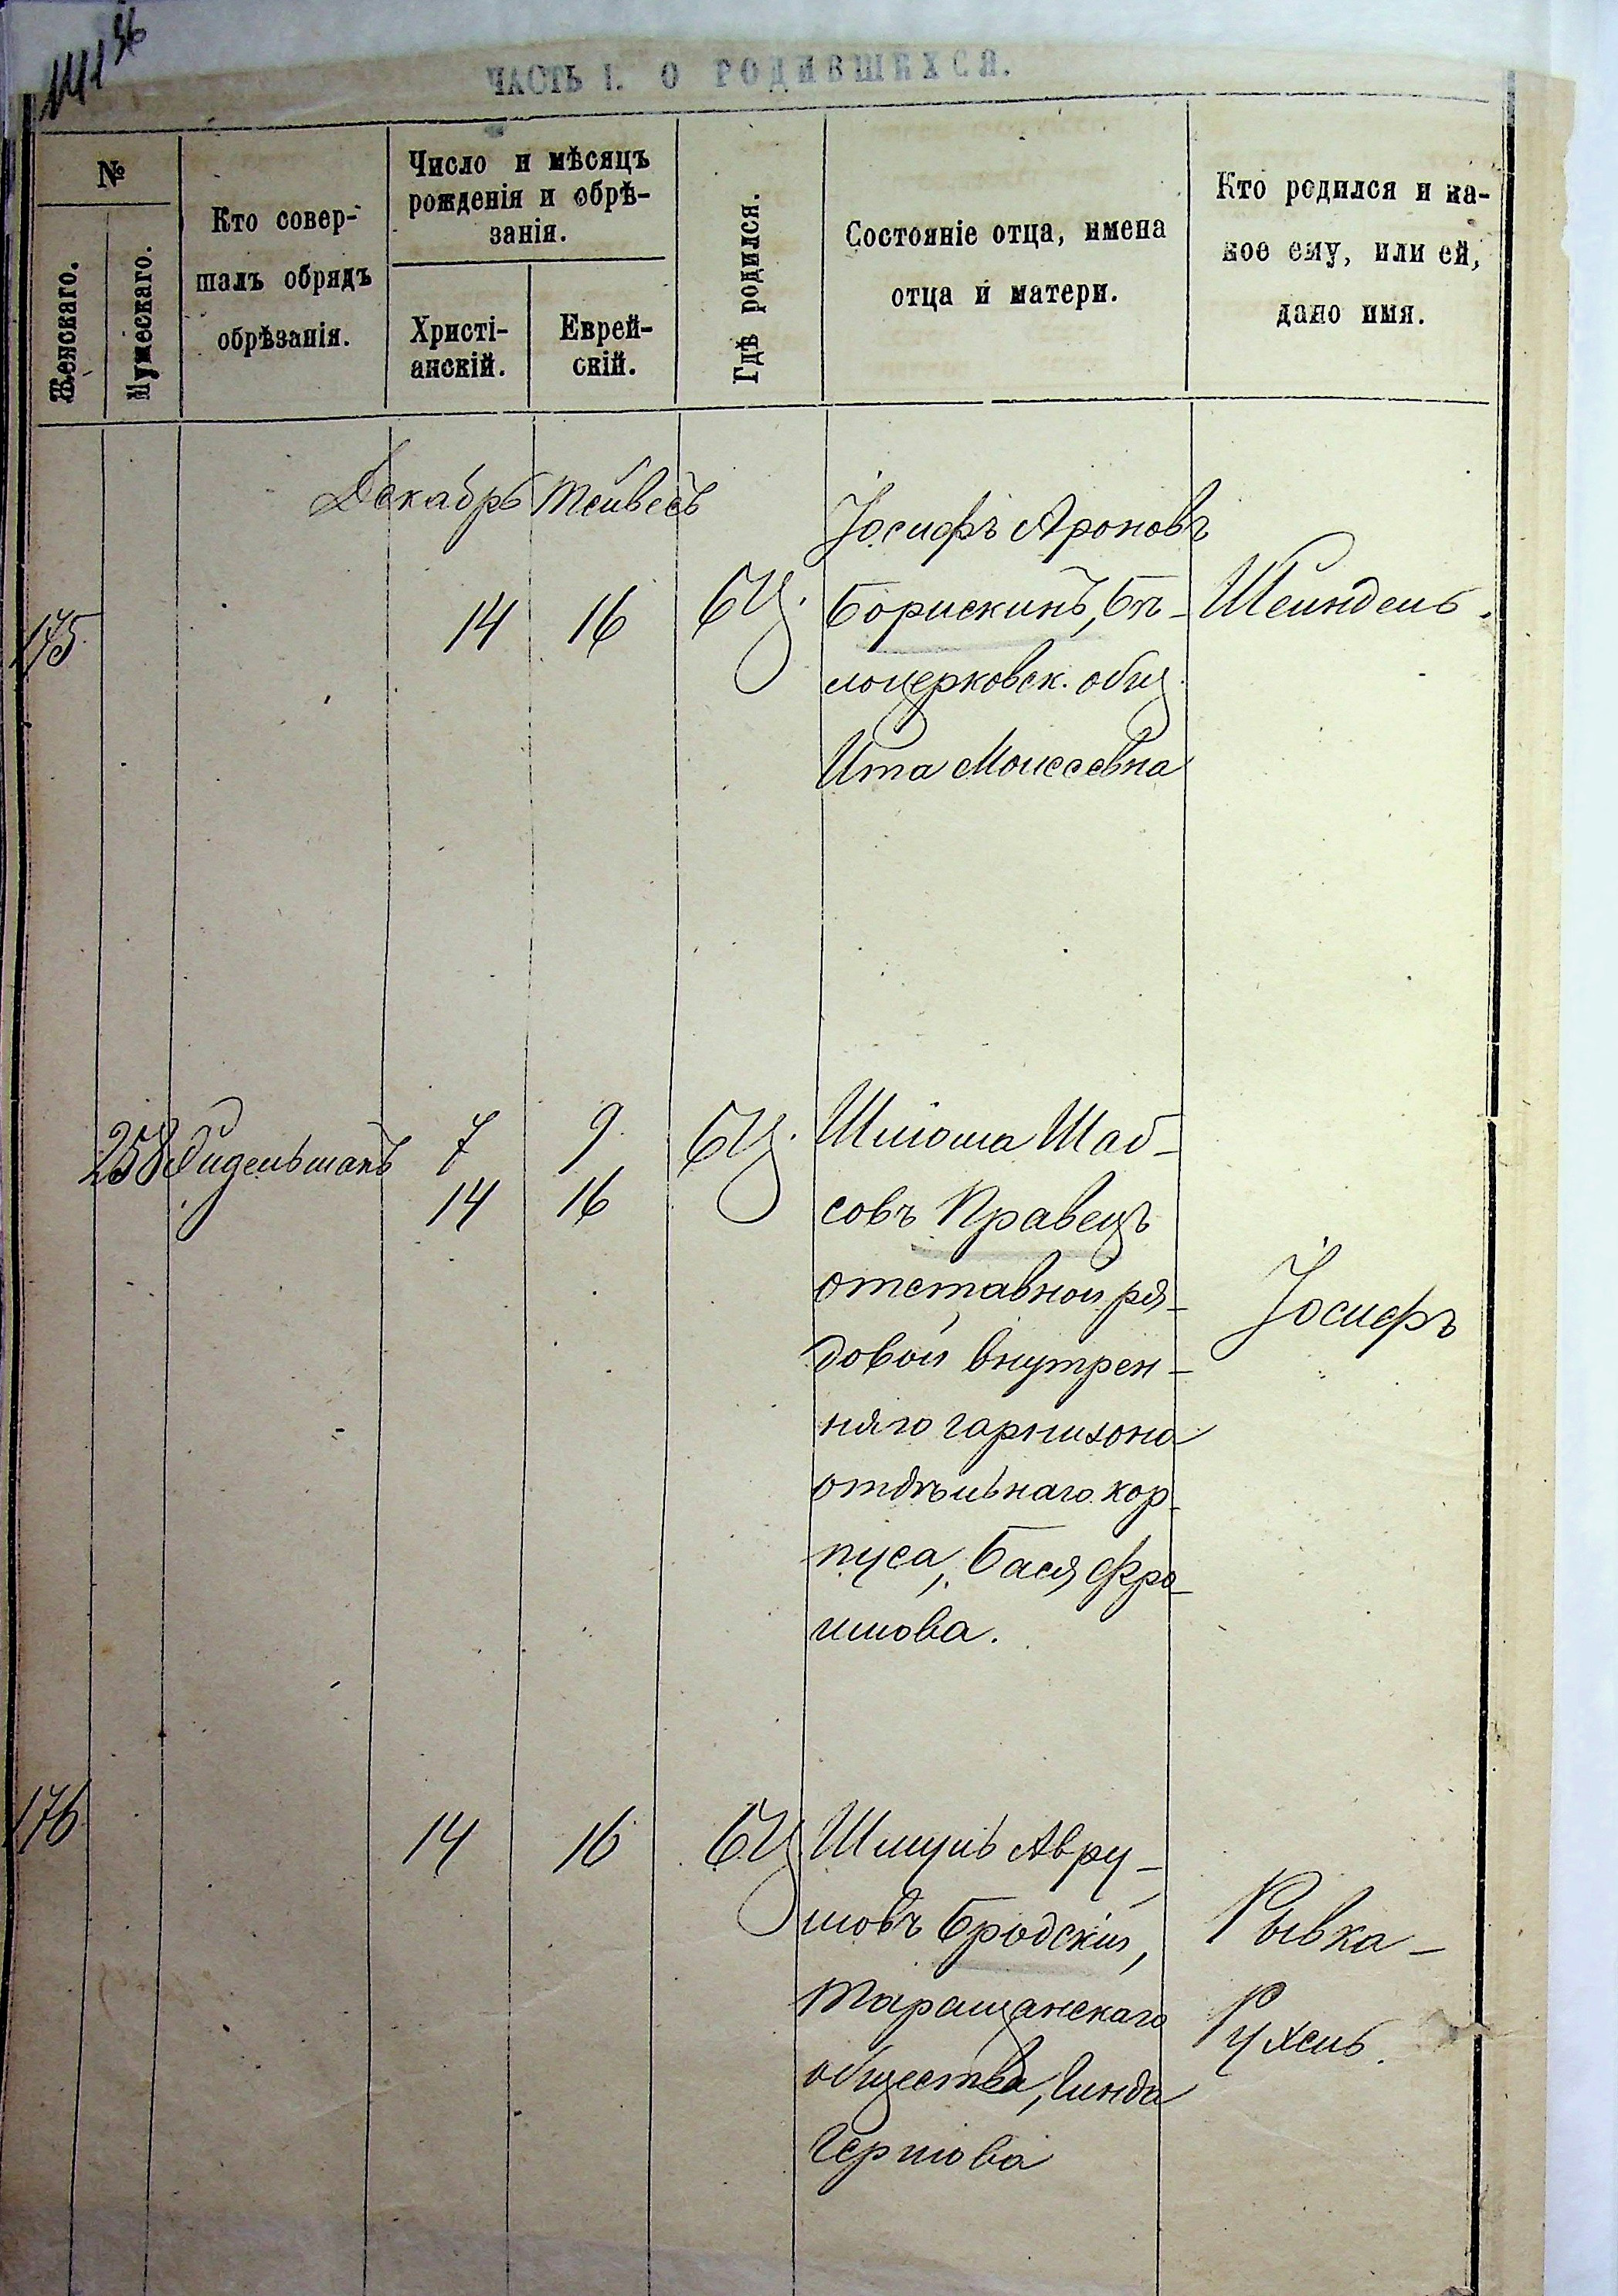 141 56
ЧАСТЬ I. О РОДИВШИХСЯ.
№
Женскаго.
Мужескаго.
Кто совер-
шалъ обрядъ
обрѣзанія.
Число и мѣсяцъ
рожденія и обрѣ-
занія.
Христі-
анскій.
Еврей-
скій.
Гдѣ родился.
Состояніе отца, имена
отца и матери.
Кто родился и ка-
кое ему, или ей,
дано имя.
Декабрь Тейвесъ
175
14 16 БЦ.
Іосифъ Ароновъ
Борискинъ, Бѣ-
лоцерковск. общ.
Ита Моисеевна
Шейндель.
258 Эйдельманъ 7 9 БЦ.
14 16
Шлiома Шаб-
совъ Кравецъ
отставной ря-
довой внутрен-
няго гарнизона
отдѣльнаго кор-
пуса, Бася Фро-
имова.
Іосифъ
176
14 16 БЦ.
Шмуль Авру-
мовъ Бродскій,
Таращанскаго
общества, Гинда
Гершова
Рывка-
Рухель.